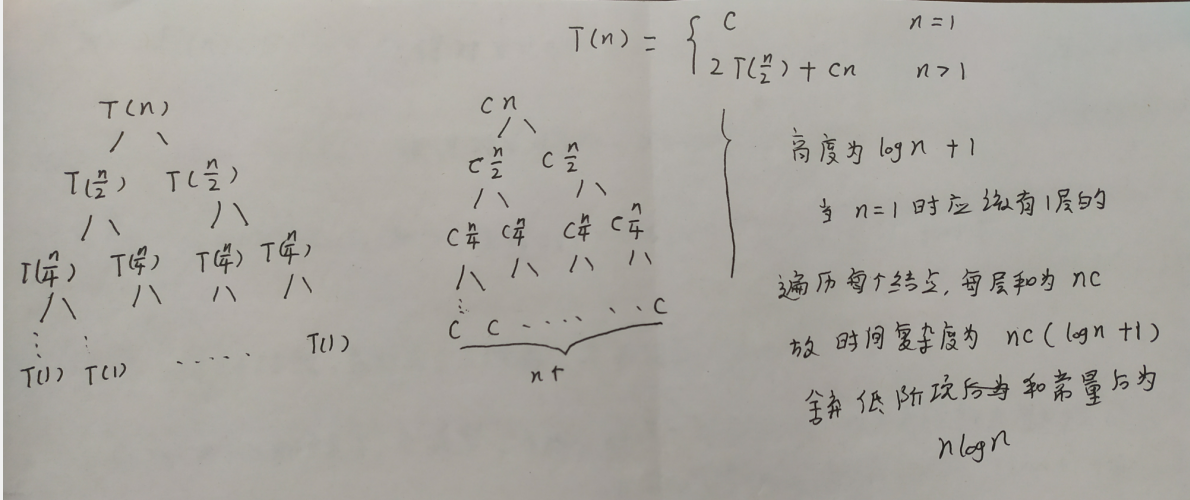 T(n) = { C n=1
2T(n/2) + cn n>1
T(n)
T(n/2) T(n/2)
T(n/4) T(n/4) T(n/4) T(n/4)
T(1) T(1) ..... T(1)
cn
c n/2 c n/2
c n/4 c n/4 c n/4 c n/4
C C ...... C
n个
高度为 logn +1
当 n=1 时应该有1层的
遍历每个结点, 每层和为 nc
故 时间复杂度为 nc(logn +1)
舍弃 低阶项 和常量后为
nlogn